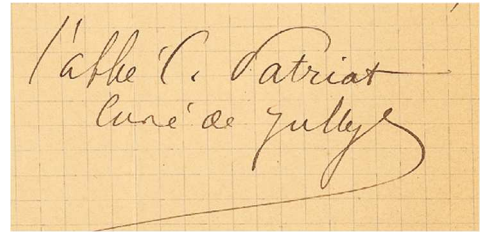 l'abbé C. Patriat
Curé de Jully